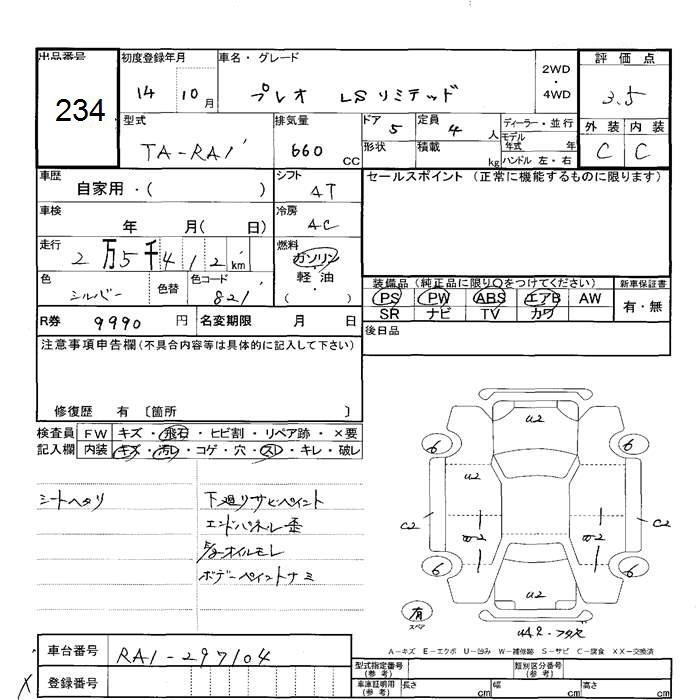 出品番号
234
初度登録年月
14 10月
車名・グレード
プレオ LSリミテッド
2WD
・
4WD
評価点
3.5
外装 内装
C C
型式
TA-RA1
排気量
660 CC
ドア 5
定員 4 人
形状
積載 kg
ディーラー・並行
モデル年式 年
ハンドル 左・右
車歴
自家用・( )
シフト
AT
車検
年 月( 日)
冷房
AC
走行
2万5千412km
燃料
ガソリン
軽油
・
色
シルバー
色替
色コード
821
R券 9990 円
名変期限 月 日
セールスポイント (正常に機能するものに限ります)
装備品(純正品に限り○をつけてください)
PS PW ABS エアB AW
SR ナビ TV カワ
新車保証書
有・無
後日品
注意事項申告欄(不具合内容等は具体的に記入して下さい)
修復歴 有 〔箇所 〕
検査員 FW キズ・飛石・ヒビ割・リペア跡・×要
記入欄 内装 キズ・汚レ・コゲ・穴・スレ・キレ・破レ
シートヘタリ
下廻りサビペイント
エンドパネル歪
オイルモレ
ボデーペイントナミ
U2
6 6
U2
C2 C2
U2
6 6
有
スペア
A-キズ E-エクボ U-凹み W-補修跡 S-サビ C-腐食 XX-交換済
車台番号 RA1-297104
登録番号
型式指定番号(参考)
類別区分番号(参考)
車庫証明用(参考) 長さ cm 幅 cm 高さ cm